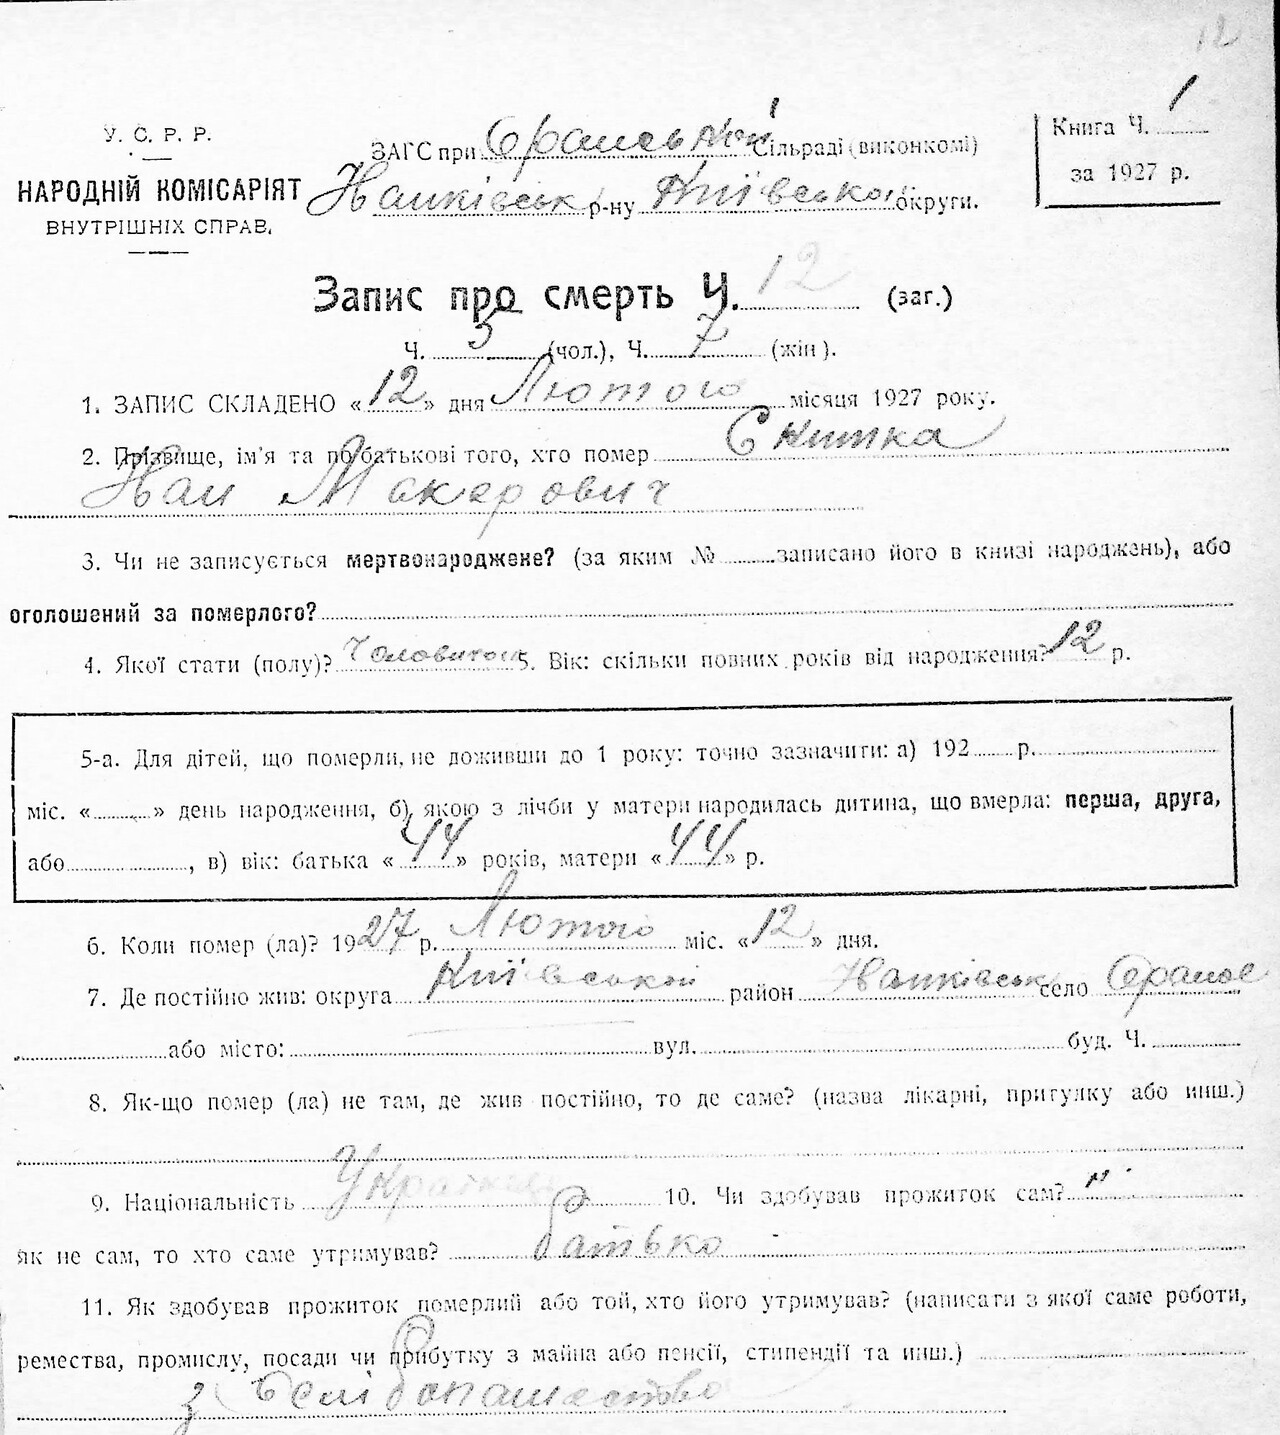 12
У. С. Р. Р.
НАРОДНІЙ КОМІСАРІЯТ
ВНУТРІШНІХ СПРАВ.
ЗАГС при Оранській Сільраді (виконкомі)
р-ну Київської округи.
Книга Ч. 1
за 1927 р.
Запис про смерть Ч. 12 (заг.)
Ч. 5 (чол.), Ч. 7 (жін).
1. ЗАПИС СКЛАДЕНО «12» дня Лютого місяця 1927 року.
2. Прізвище, ім'я та по батькові того, хто помер Скитка
Іван Макарович
3. Чи не записується мертвонароджене? (за яким № записано його в книзі народжень), або
оголошений за померлого?
4. Якої стати (полу)? 5. Вік: скільки повних років від народження? 12 р.
5-а. Для дітей, що померли, не доживши до 1 року: точно зазначити: а) 192 р.
міс. « » день народження, б) якою з лічби у матери народилась дитина, що вмерла: перша, друга,
або , в) вік: батька «44» років, матери «44» р.
6. Коли помер (ла)? 1927 р. Лютого міс. «12» дня.
7. Де постійно жив: округа Київській район село Оране
або місто: вул. буд. Ч.
8. Як-що помер (ла) не там, де жив постійно, то де саме? (назва лікарні, пригулку або инш.)
9. Національність Українець 10. Чи здобував прожиток сам?
як не сам, то хто саме утримував? батько
11. Як здобував прожиток померлий або той, хто його утримував? (написати з якої саме роботи,
ремества, промислу, посади чи прибутку з майна або пенсії, стипендії та инш.)
з